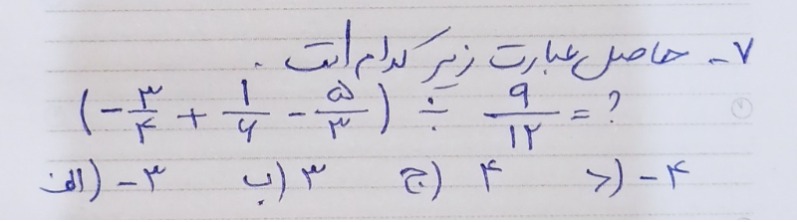 ۷- حاصل عبارت زیر کدام است .
(-۳/۴ + ۱/۶ - ۵/۳) ÷ ۹/۱۲ = ?
الف) -۳ ب) ۳ ج) ۴ د) -۴